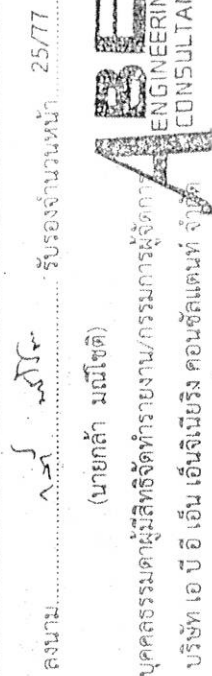 ลงนาม.......................รับรองจำนวนหน้า 25/77
(นายกล้า มณีโชติ)
บุคคลธรรมดาผู้มีสิทธิจัดทำรายงาน/กรรมการผู้จัดการ
บริษัท เอ บี อี เอ็น เอ็นจิเนียริ่ง คอนซัลแตนท์ จำกัด
ENGINEERIN
CONSULTAN